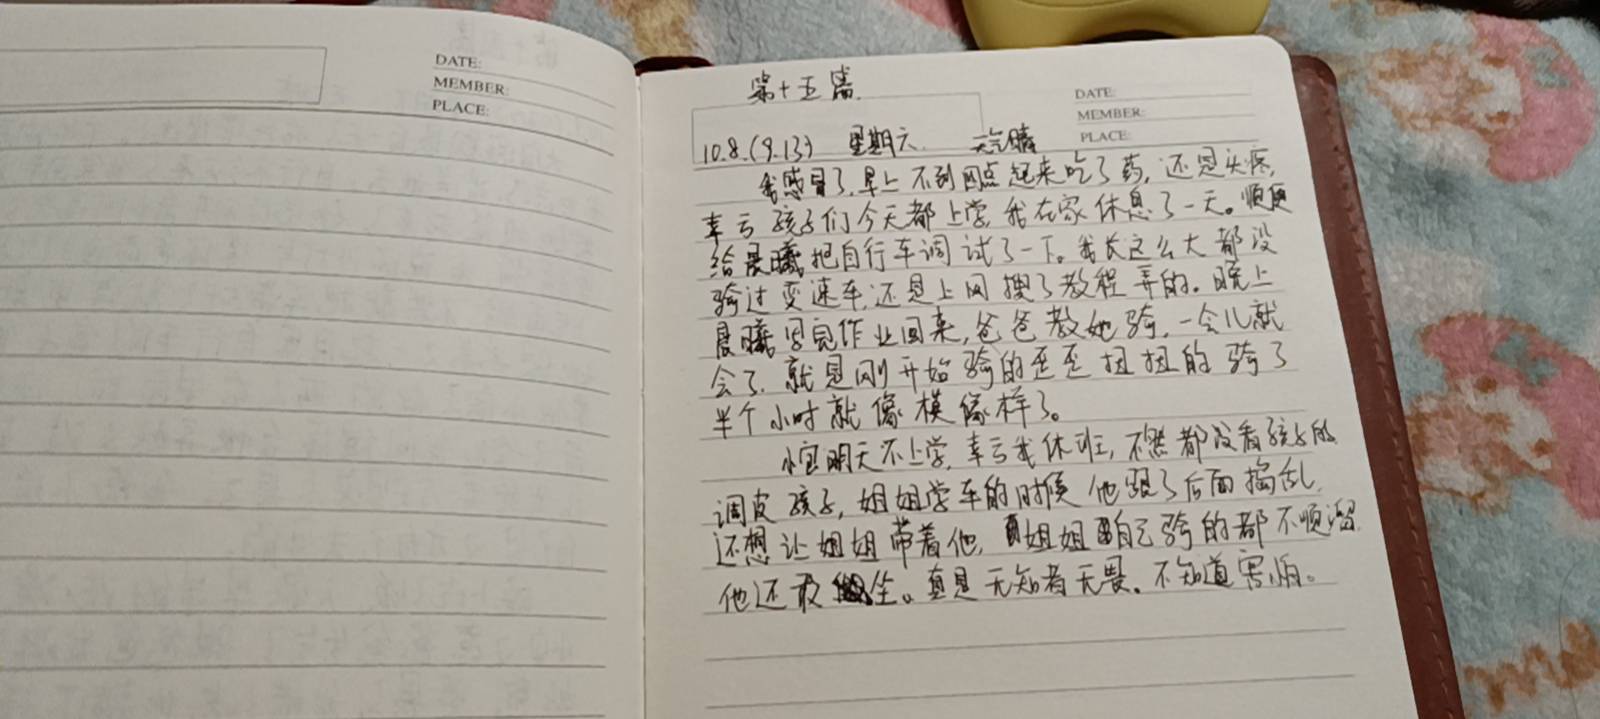 DATE:
MEMBER:
PLACE:
第十五篇
DATE:
MEMBER:
PLACE:
10.8.(9.13) 星期六. 天气晴
我感冒了,早上不到四点起来吃了药,还是头疼,
幸亏孩子们今天都上学,我在家休息了一天。顺便
给晨曦把自行车调试了一下。我长这么大都没
骑过变速车,还是上网搜了教程弄的。晚上
晨曦写完作业回来,爸爸教她骑,一会儿就
会了,就是刚开始骑的歪歪扭扭的骑了
半个小时就像模像样了。
明天不上学,幸亏我休班,不然都没看孩子的
调皮孩子,姐姐学车的时候他跟了后面捣乱,
还想让姐姐带着他,姐姐自己骑的都不顺溜
他还敢坐。真是无知者无畏。不知道害怕。